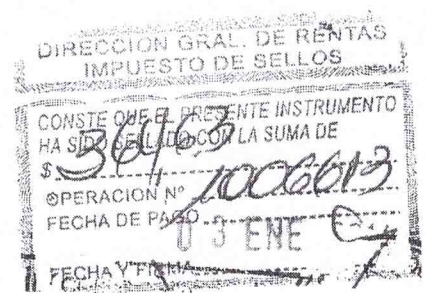 DIRECCION GRAL. DE RENTAS
IMPUESTO DE SELLOS
CONSTE QUE EL PRESENTE INSTRUMENTO
HA SIDO SELLADO CON LA SUMA DE
$
OPERACION Nº 1006613
FECHA DE PAGO
03 ENE
FECHA Y FIRMA